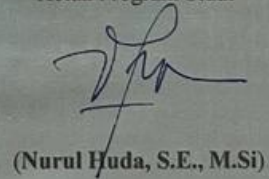 (Nurul Huda, S.E., M.Si)